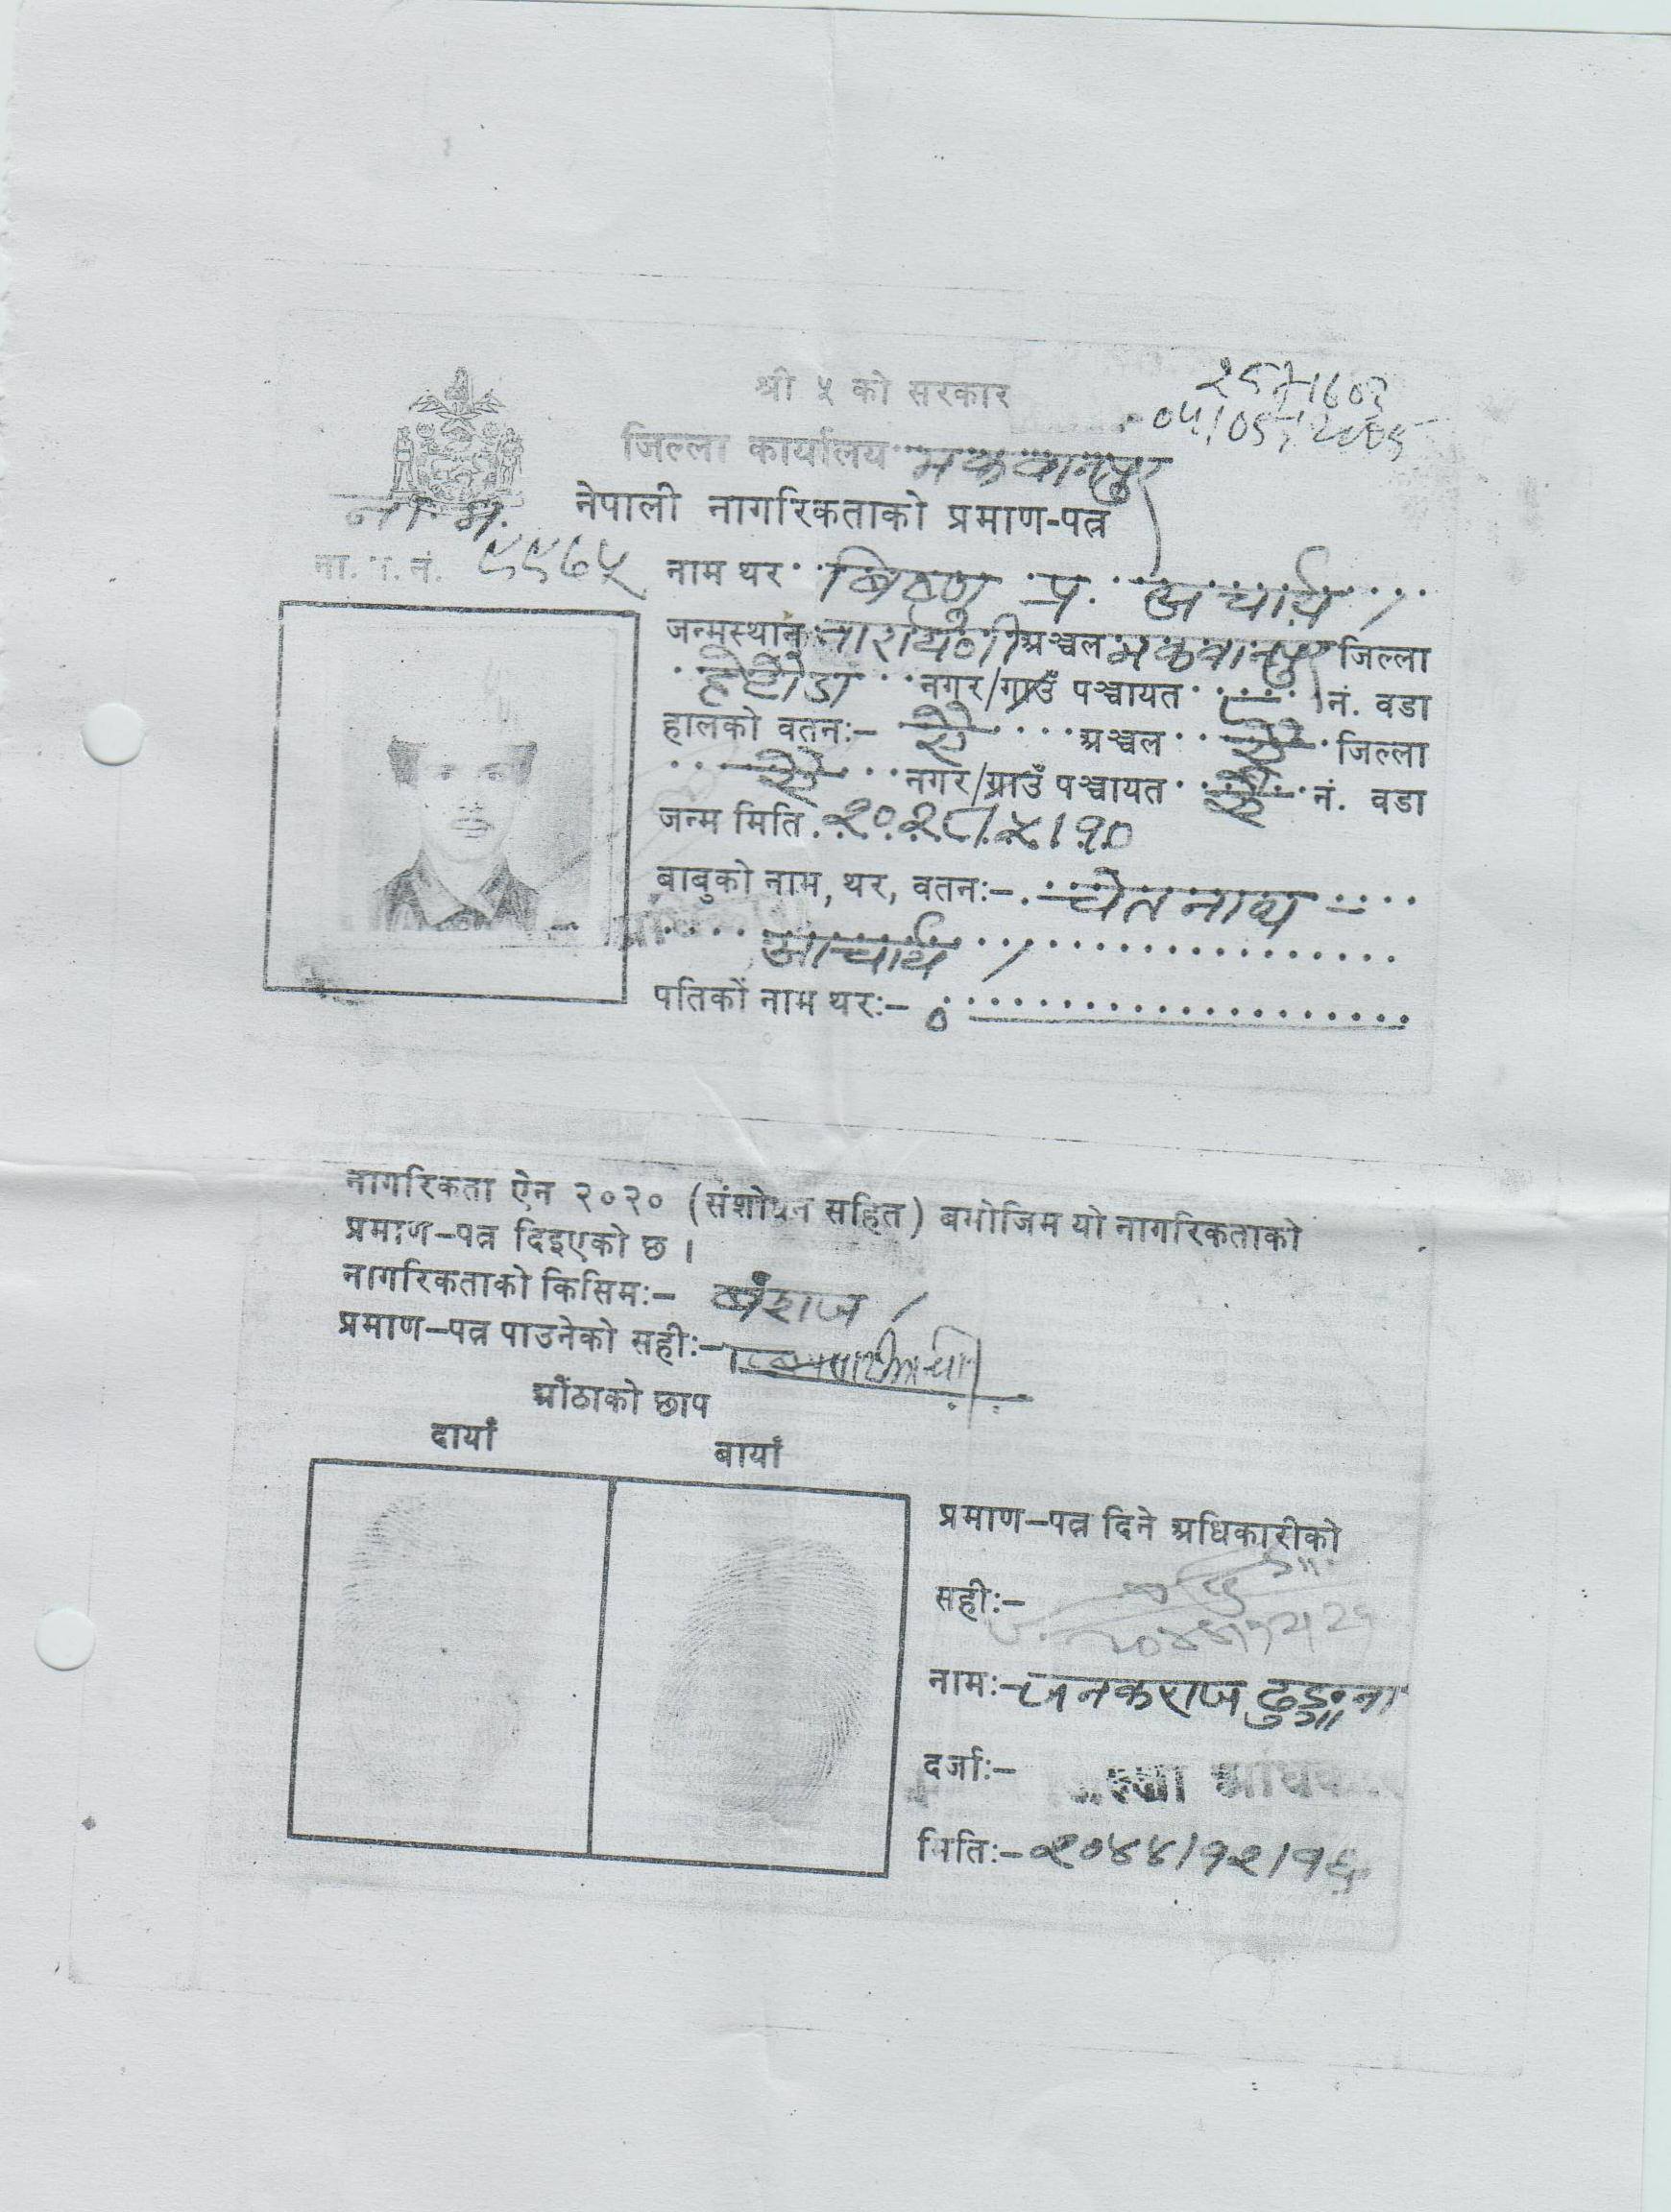 श्री ५ को सरकार
जिल्ला कार्यालय मकवानपुर
ना. म.
नेपाली नागरिकताको प्रमाण-पत्र
ना. प्र. नं. ९९७५
नाम थर बिष्णु प्र. अचार्य /
जन्मस्थान नारायणी अञ्चल मकवानपुर जिल्ला
हेटौडा नगर/गाउँ पञ्चायत ८ नं. वडा
हालको वतनः- ऐ अञ्चल ऐ जिल्ला
ऐ नगर/गाउँ पञ्चायत ऐ नं. वडा
जन्म मिति २०२८।५।१०
बाबुको नाम, थर, वतनः- चेत नाथ
आचार्य /
पतिको नाम थरः- ०
नागरिकता ऐन २०२० (संशोधन सहित) बमोजिम यो नागरिकताको
प्रमाण-पत्र दिइएको छ ।
नागरिकताको किसिमः- बंशज /
प्रमाण-पत्र पाउनेको सहीः-
औंठाको छाप
दायाँ बायाँ
प्रमाण-पत्र दिने अधिकारीको
सहीः-
नामः- जनकराज ढुङ्गाना
दर्जाः-
मितिः- २०४४।१२।१६